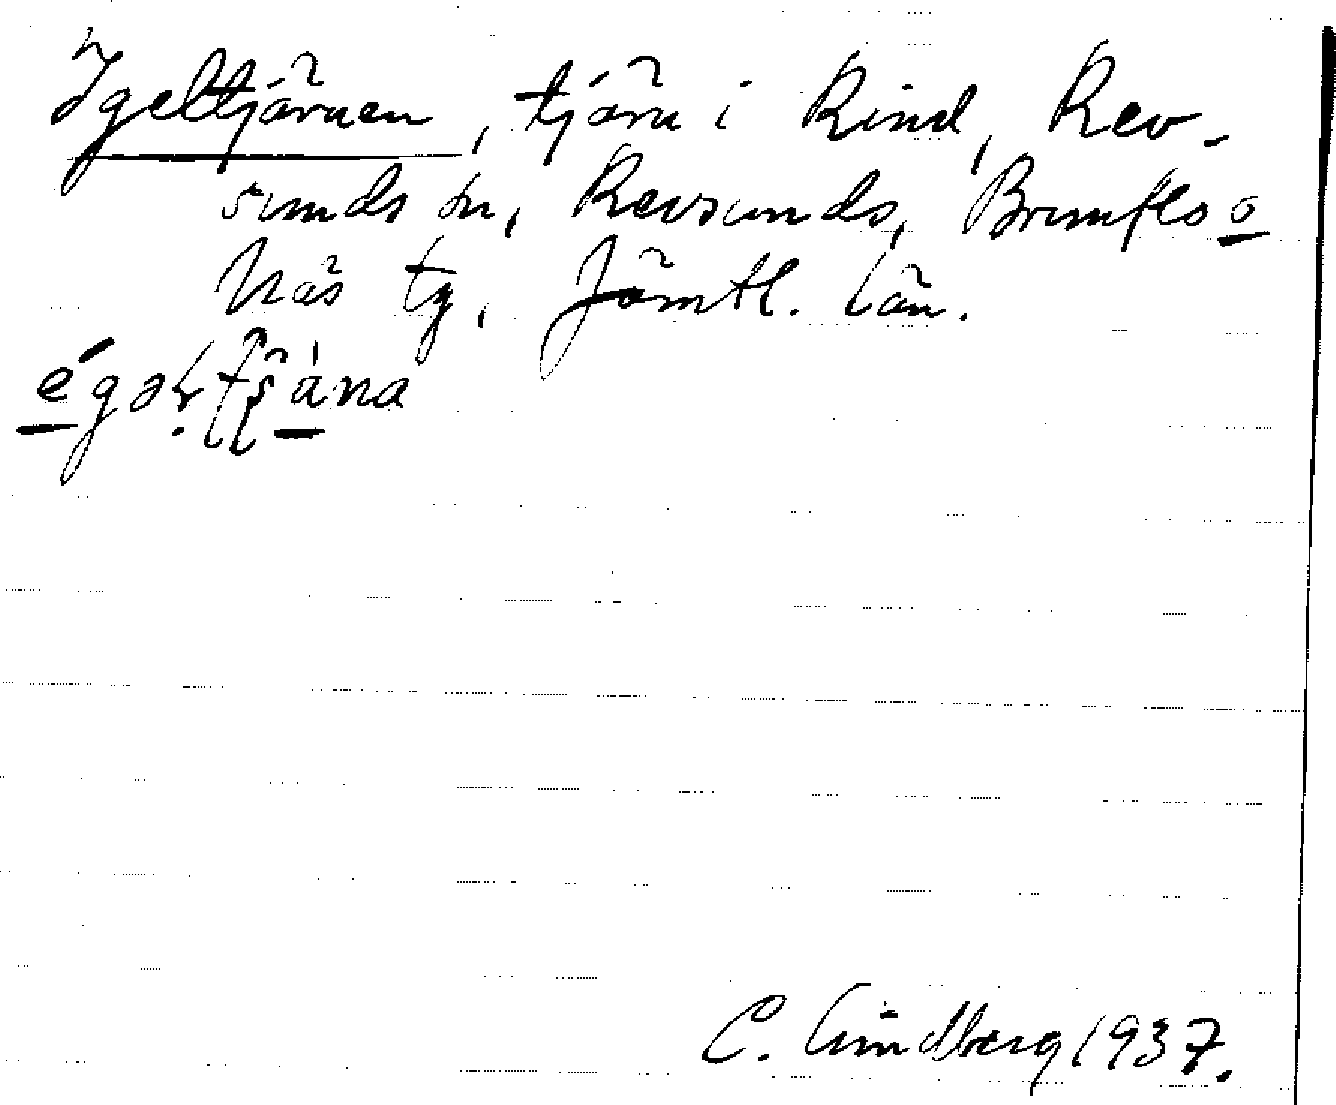 Igeltjärnen, tjärn i Rind, Rev-
sunds sn, Revsunds, Brunflo o
Näs tg, Jämtl. län.
C. Lindberg 1937.